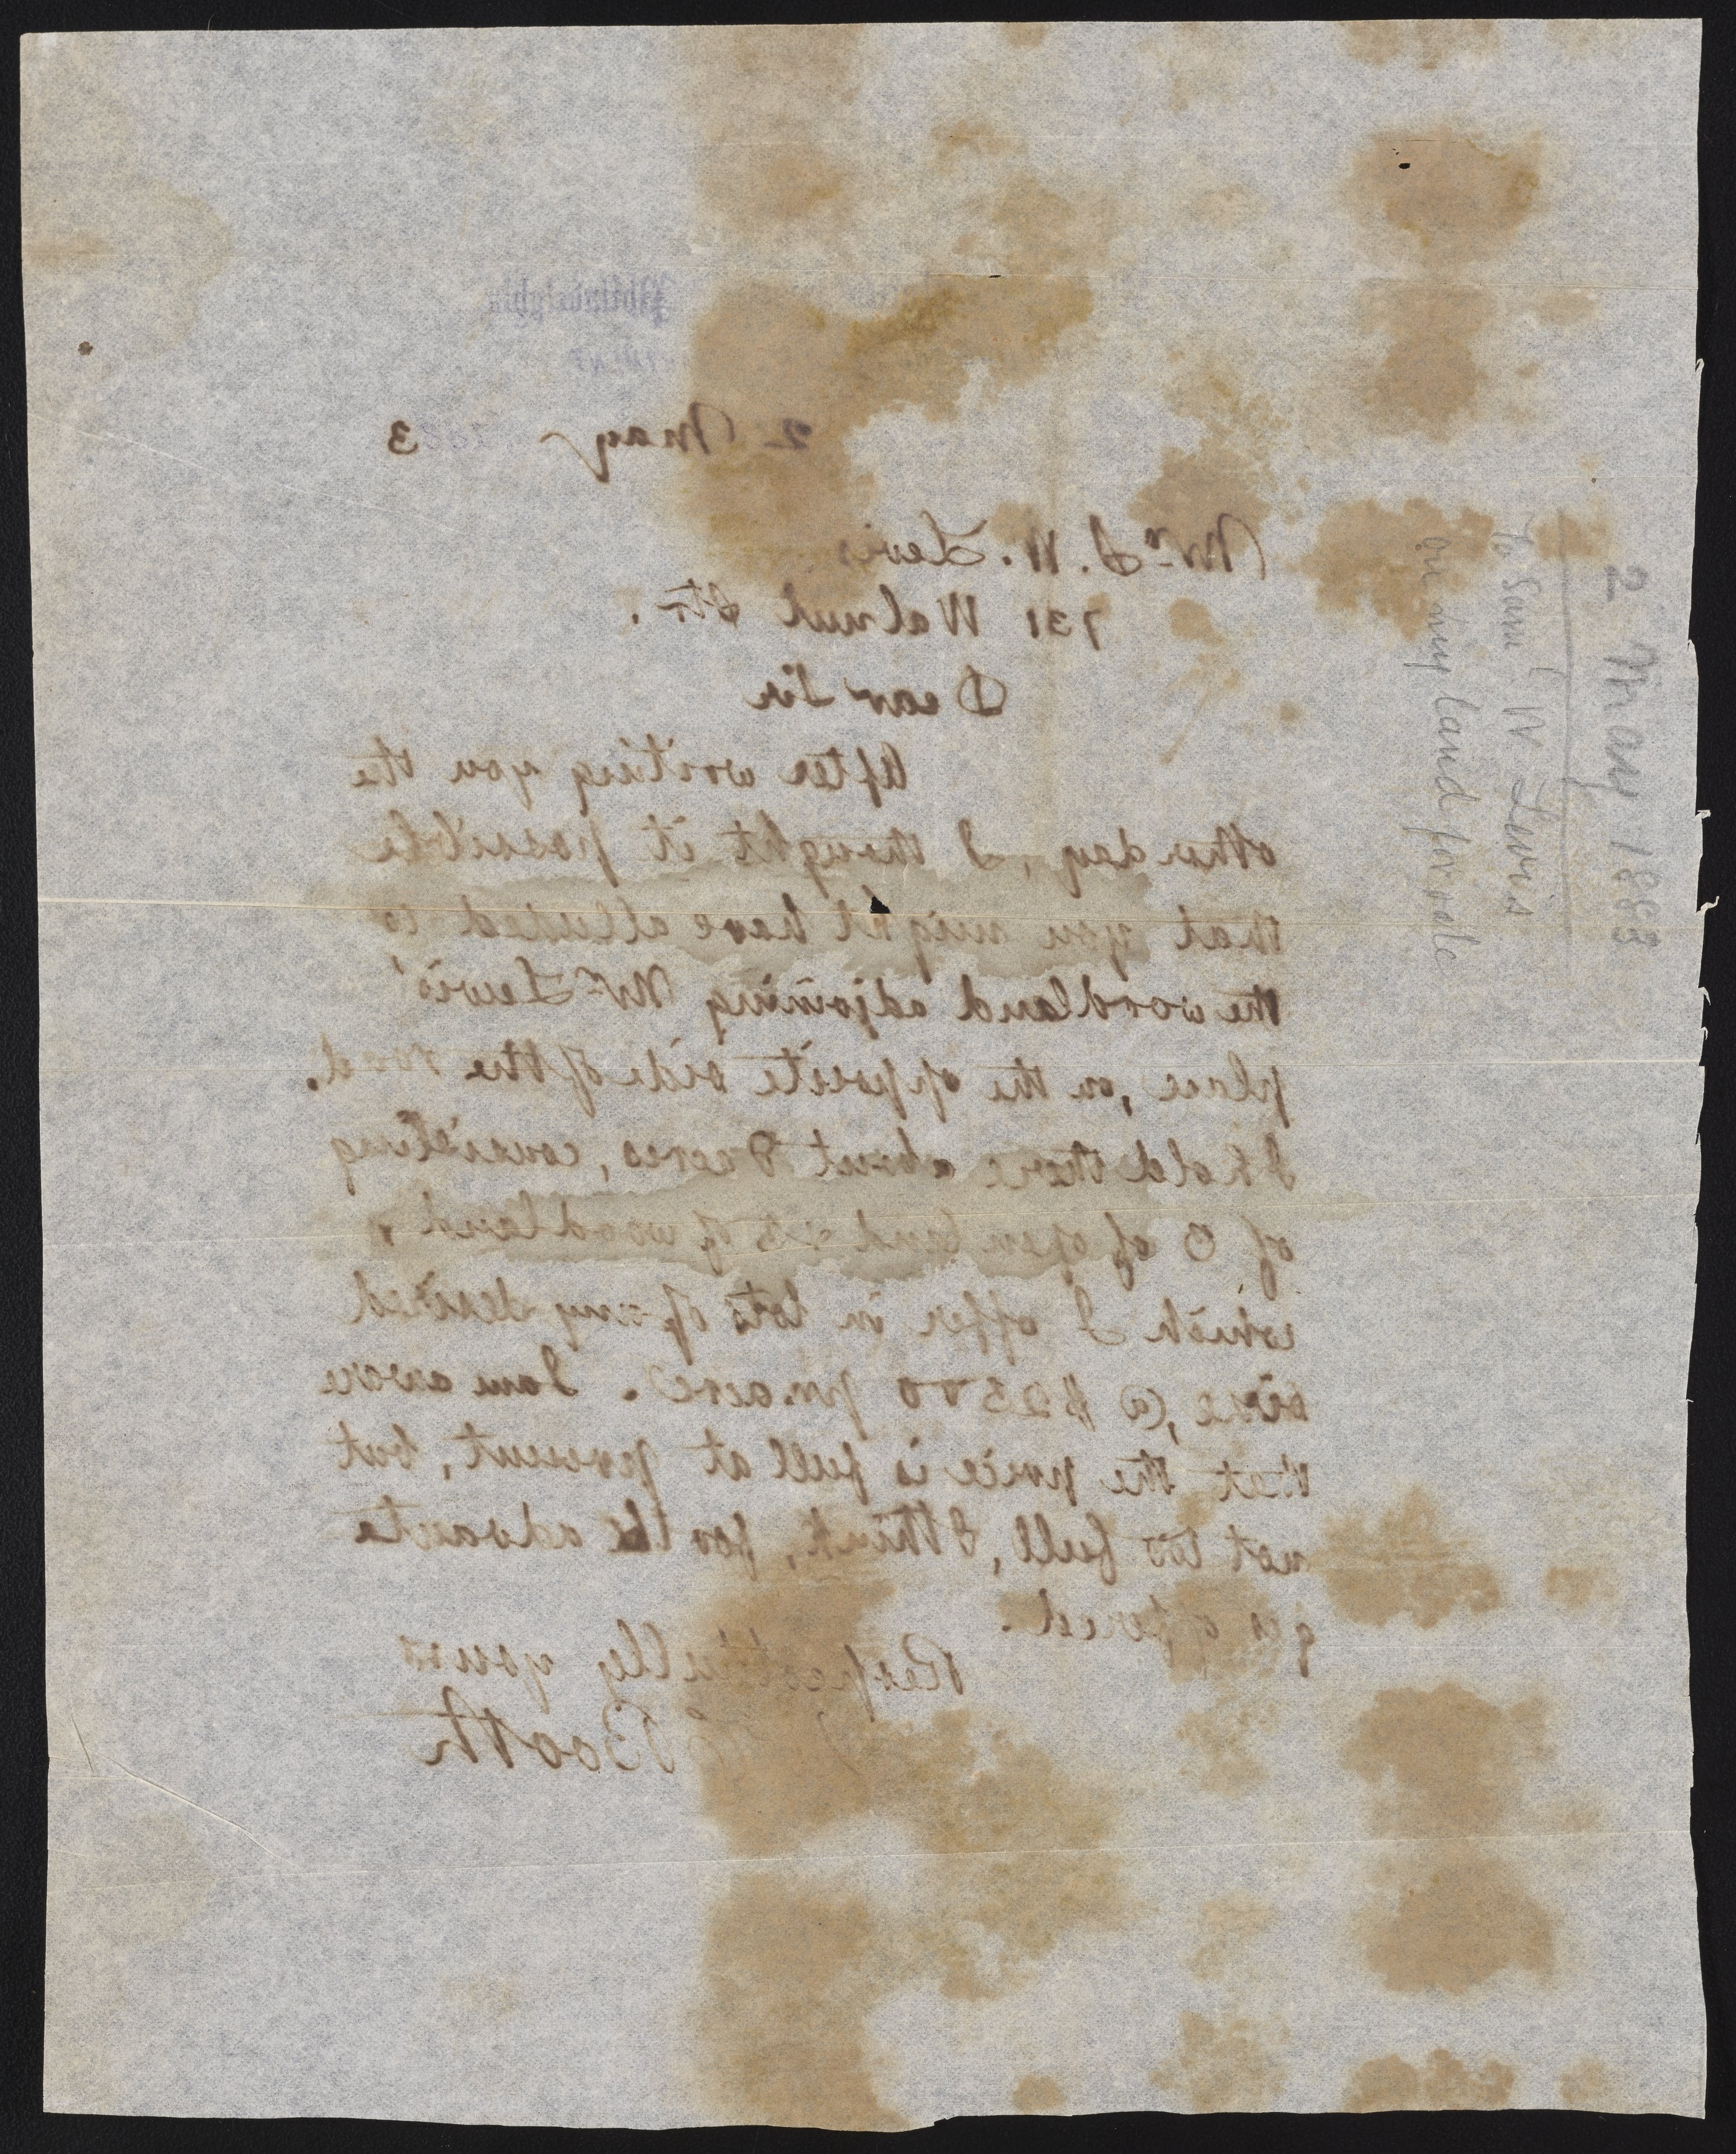 Philadelphia
2 May 1883
Mr. S. W. Lewis
731 Walnut Str.
Dear Sir
After writing you the
other day, I thought it possible
that you might have alluded to
the woodland adjoining Mr. Lewis'
place, on the opposite side of the road.
I hold there about 8 acres, consisting
of 3 of open land & 5 of woodland,
which I offer in lots of any desired
size, @ $2500 per acre. I am aware
that the price is full at present, but
not too full, I think, for the advanta
ges offered.
Respectfully yours
Booth
2 May 1883
To Saml W Lewis
on my land for sale